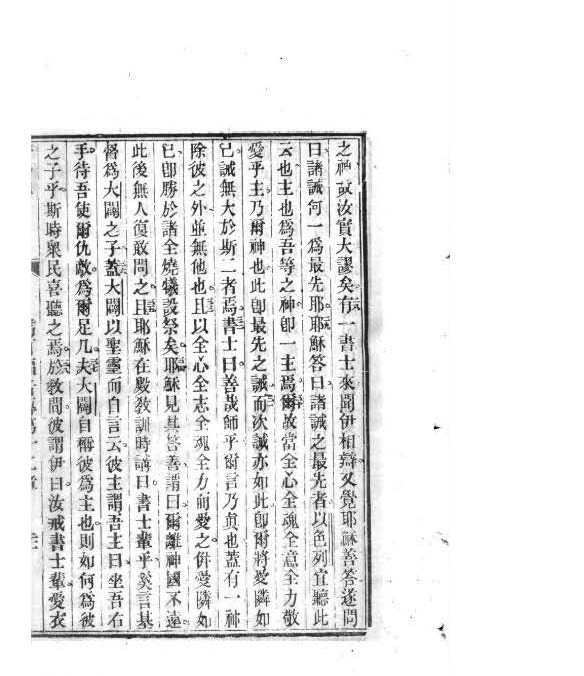 之神故汝實大謬矣有一書士來聞伊相辯又覺耶穌善答遂問
曰諸誡何一爲最先耶耶穌答曰諸誡之最先者以色列宜聽此
云也主也爲吾等之神卽一主焉爾故當全心全魂全意全力敬
愛乎主乃爾神也此卽最先之誡而次誡亦如此卽爾將愛隣如
己誡無大於斯二者焉書士曰善哉師乎爾言乃眞也蓋有一神
除彼之外並無他也且以全心全志全魂全力而愛之倂愛隣如
己卽勝於諸全燒犧設祭矣耶穌見其答善謂曰爾離神國不遠
此後無人復敢問之且耶穌在殿敎訓時講曰書士輩乎奚言基
督爲大闢之子蓋大闢以聖靈而自言云彼主謂吾主曰坐吾右
手待吾使爾仇敵爲爾足几夫大闢自稱彼爲主也則如何爲彼
之子乎斯時衆民喜聽之焉於敎間彼謂伊曰汝戒書士輩愛衣